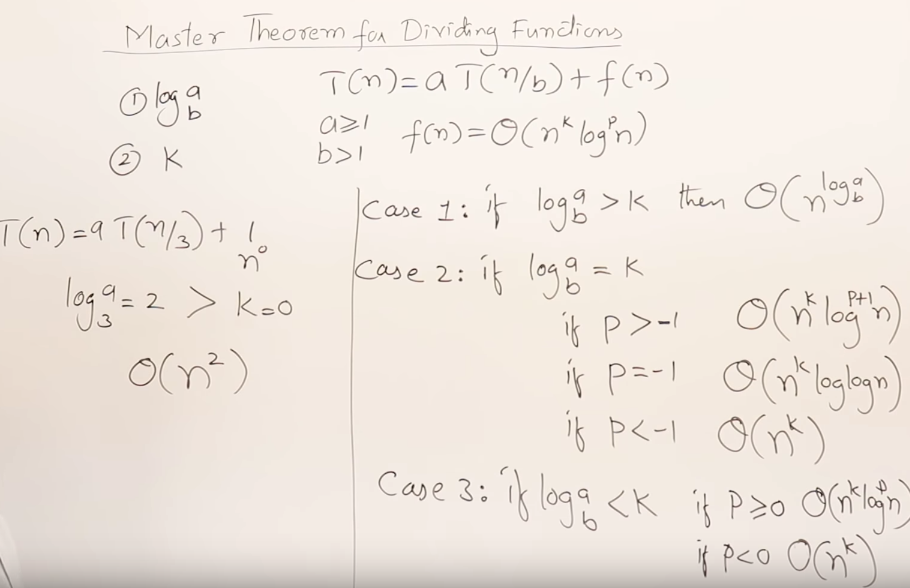 Master Theorem for Dividing Functions
① log_b a
② K
T(n)=a T(n/b)+f(n)
a≥1
b>1
f(n)=O(n^k log^p n)
T(n)=9 T(n/3)+1
n^0
log_3 9=2 > k=0
O(n^2)
Case 1: if log_b a >k then O(n^(log_b a))
Case 2: if log_b a = k
if P>-1 O(n^k log^(p+1) n)
if P=-1 O(n^k loglogn)
if P<-1 O(n^k)
Case 3: if log_b a <k if P≥0 O(n^k log^p n)
if P<0 O(n^k)